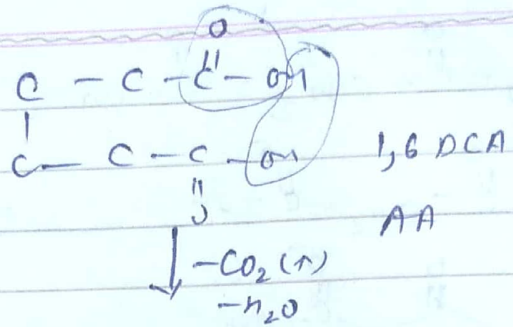 O
||
C - C - C - OH
|
C - C - C - OH 1,6 DCA
||
O AA
↓ -CO2(↑)
-H2O